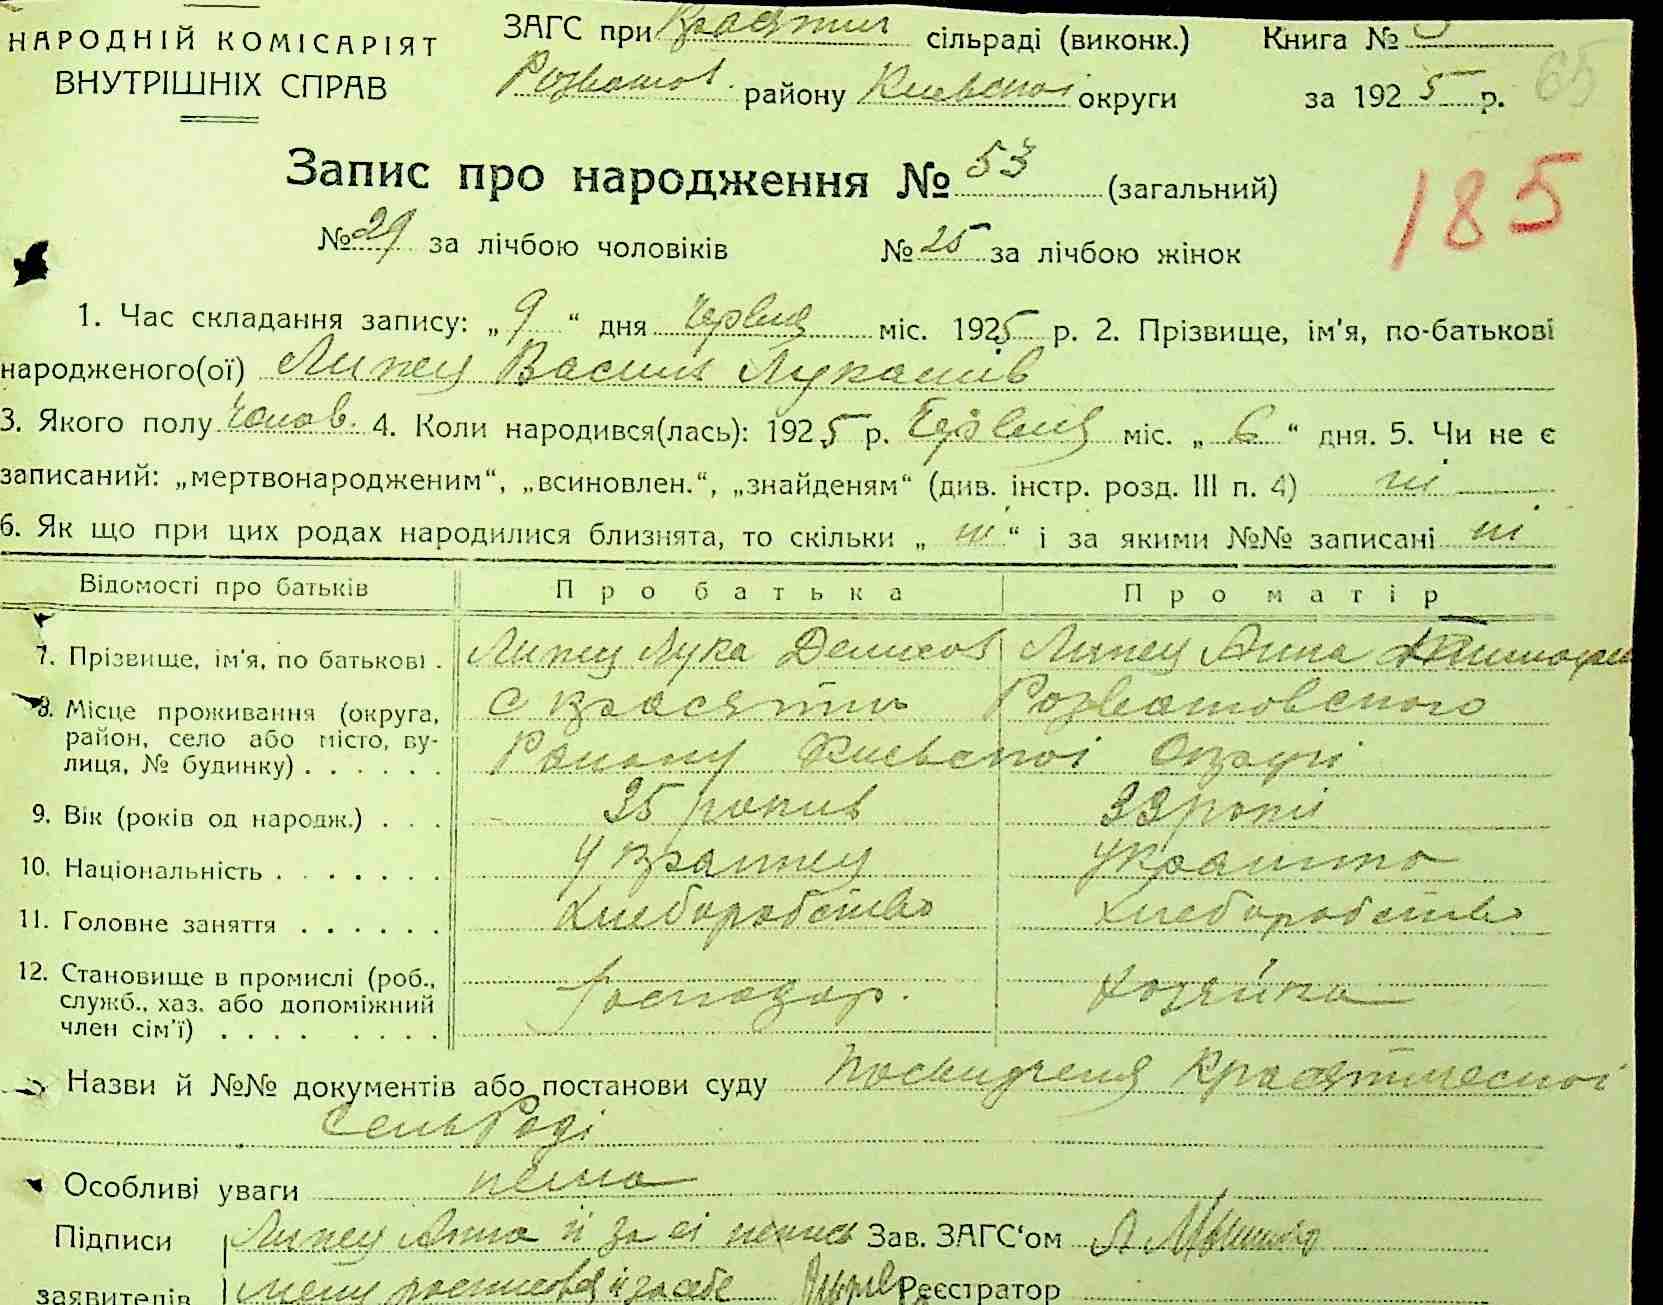 НАРОДНІЙ КОМІСАРІЯТ
ВНУТРІШНІХ СПРАВ
ЗАГС при Красятич сільраді (виконк.) Книга №
Розважов. району Киевскої округи за 1925 р. 65
Запис про народження № 53 (загальний)
185
№ 29 за лічбою чоловіків № 25 за лічбою жінок
1. Час складання запису: „9“ дня червця міс. 1925 р. 2. Прізвище, ім'я, по-батькові
народженого(ої) Липец Василь Лукашів
3. Якого полу чолов. 4. Коли народився(лась): 1925 р. Червця міс. „6“ дня. 5. Чи не є
записаний: „мертвонародженим“, „всиновлен.“, „знайденям“ (див. інстр. розд. III п. 4) ні
6. Як що при цих родах народилися близнята, то скільки „ні“ і за якими №№ записані ні
Відомості про батьків Про батька Про матір
7. Прізвище, ім'я, по батькові . Липец Лука Денисов Липец Анна
8. Місце проживання (округа, район, село або місто, вулиця, № будинку) . . . . . . с Красятичь Розважовского
Району Киевскої Округи
9. Вік (років од народж.) . . . 35 рокив 33 рокі
10. Національність . . . . . . . Украинец Украинка
11. Головне заняття . . . . . . Хлеборобство Хлеборобство
12. Становище в промислі (роб., служб., хаз. або допоміжний член сім'ї) . . . . . . . . Господар. Хозяйка
Назви й №№ документів або постанови суду Посвидченя Красятическої
СельРаді
Особливі уваги нема
Підписи Липец Анна й за еі Зав. ЗАГС'ом
заявителів росписовся й засебе Реєстратор